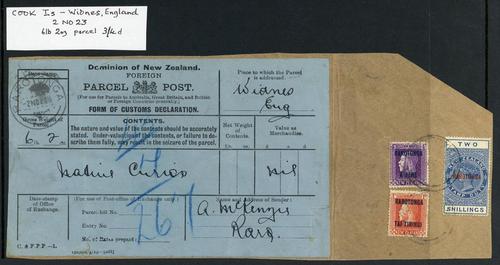 COOK Is - Widnes, England
2 NO 23
6lb 2oz parcel 3/4d
Dominion of New Zealand.
FOREIGN
PARCEL POST.
(For use for Parcels to Australia, Great Britain, and British
or Foreign Countries generally.)
FORM OF CUSTOMS DECLARATION.
Place to which the Parcel
is addressed.
Widnes
Eng
Date-stamp.
RAROTONGA
Gross Weight of
Parcel.
6 lb. 2 oz.
CONTENTS.
The nature and value of the contents should be accurately
stated. Under-valuation of the contents, or failure to de-
scribe them fully, may result in the seizure of the parcel.
Net Weight of
Contents.
Value as
Merchandise.
Native Curios
Nil
Date-stamp of
Office of
Exchange.
(For use of Post-office of Exchange only.)
Parcel-bill No.
Entry No.
No. of Rates prepaid:
261
Name and Address of Sender:
A. McKenzie
Raro.
C. & P.P.P.-1.
RAROTONGA
RAROTONGA
TWO
RAROTONGA
SHILLINGS